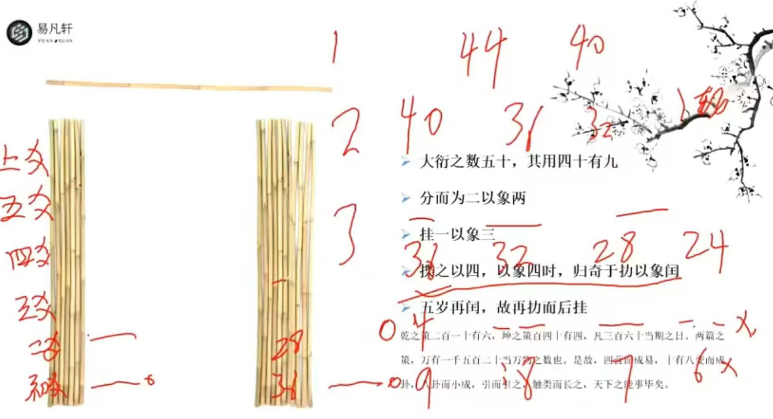 易凡轩
YI FAN XUAN
1 44 40
2 40 36 32
大衍之数五十，其用四十有九
分而为二以象两
3
挂一以象三
36 32 28 24
揲之以四，以象四时，归奇于扐以象闰
五岁再闰，故再扐而后挂
乾之策二百一十有六，坤之策百四十有四，凡三百六十当期之日，两篇之
策，万有一千五百二十当万物之数也。是故，四营而成易，十有八变而成
卦，八卦而小成，引而引之，触类而长之，天下之能事毕矣。
9 8 7 6
上爻
五爻
四爻
三爻
二爻 28
初爻 36